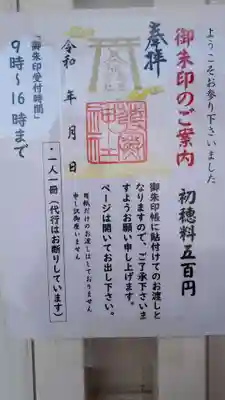 ようこそお参り下さいました
御朱印のご案内
初穂料五百円
奉拝
令和　年　月　日
御朱印帳に貼付けてのお渡しと
なりますので、ご了承下さいま
すようお願い申し上げます。
ページは開いてお出し下さい。
用紙だけのお渡しはしておりません
申し訳御座いません
・一人一冊（代行はお断りしています）
「御朱印受付時間」
9時～16時まで